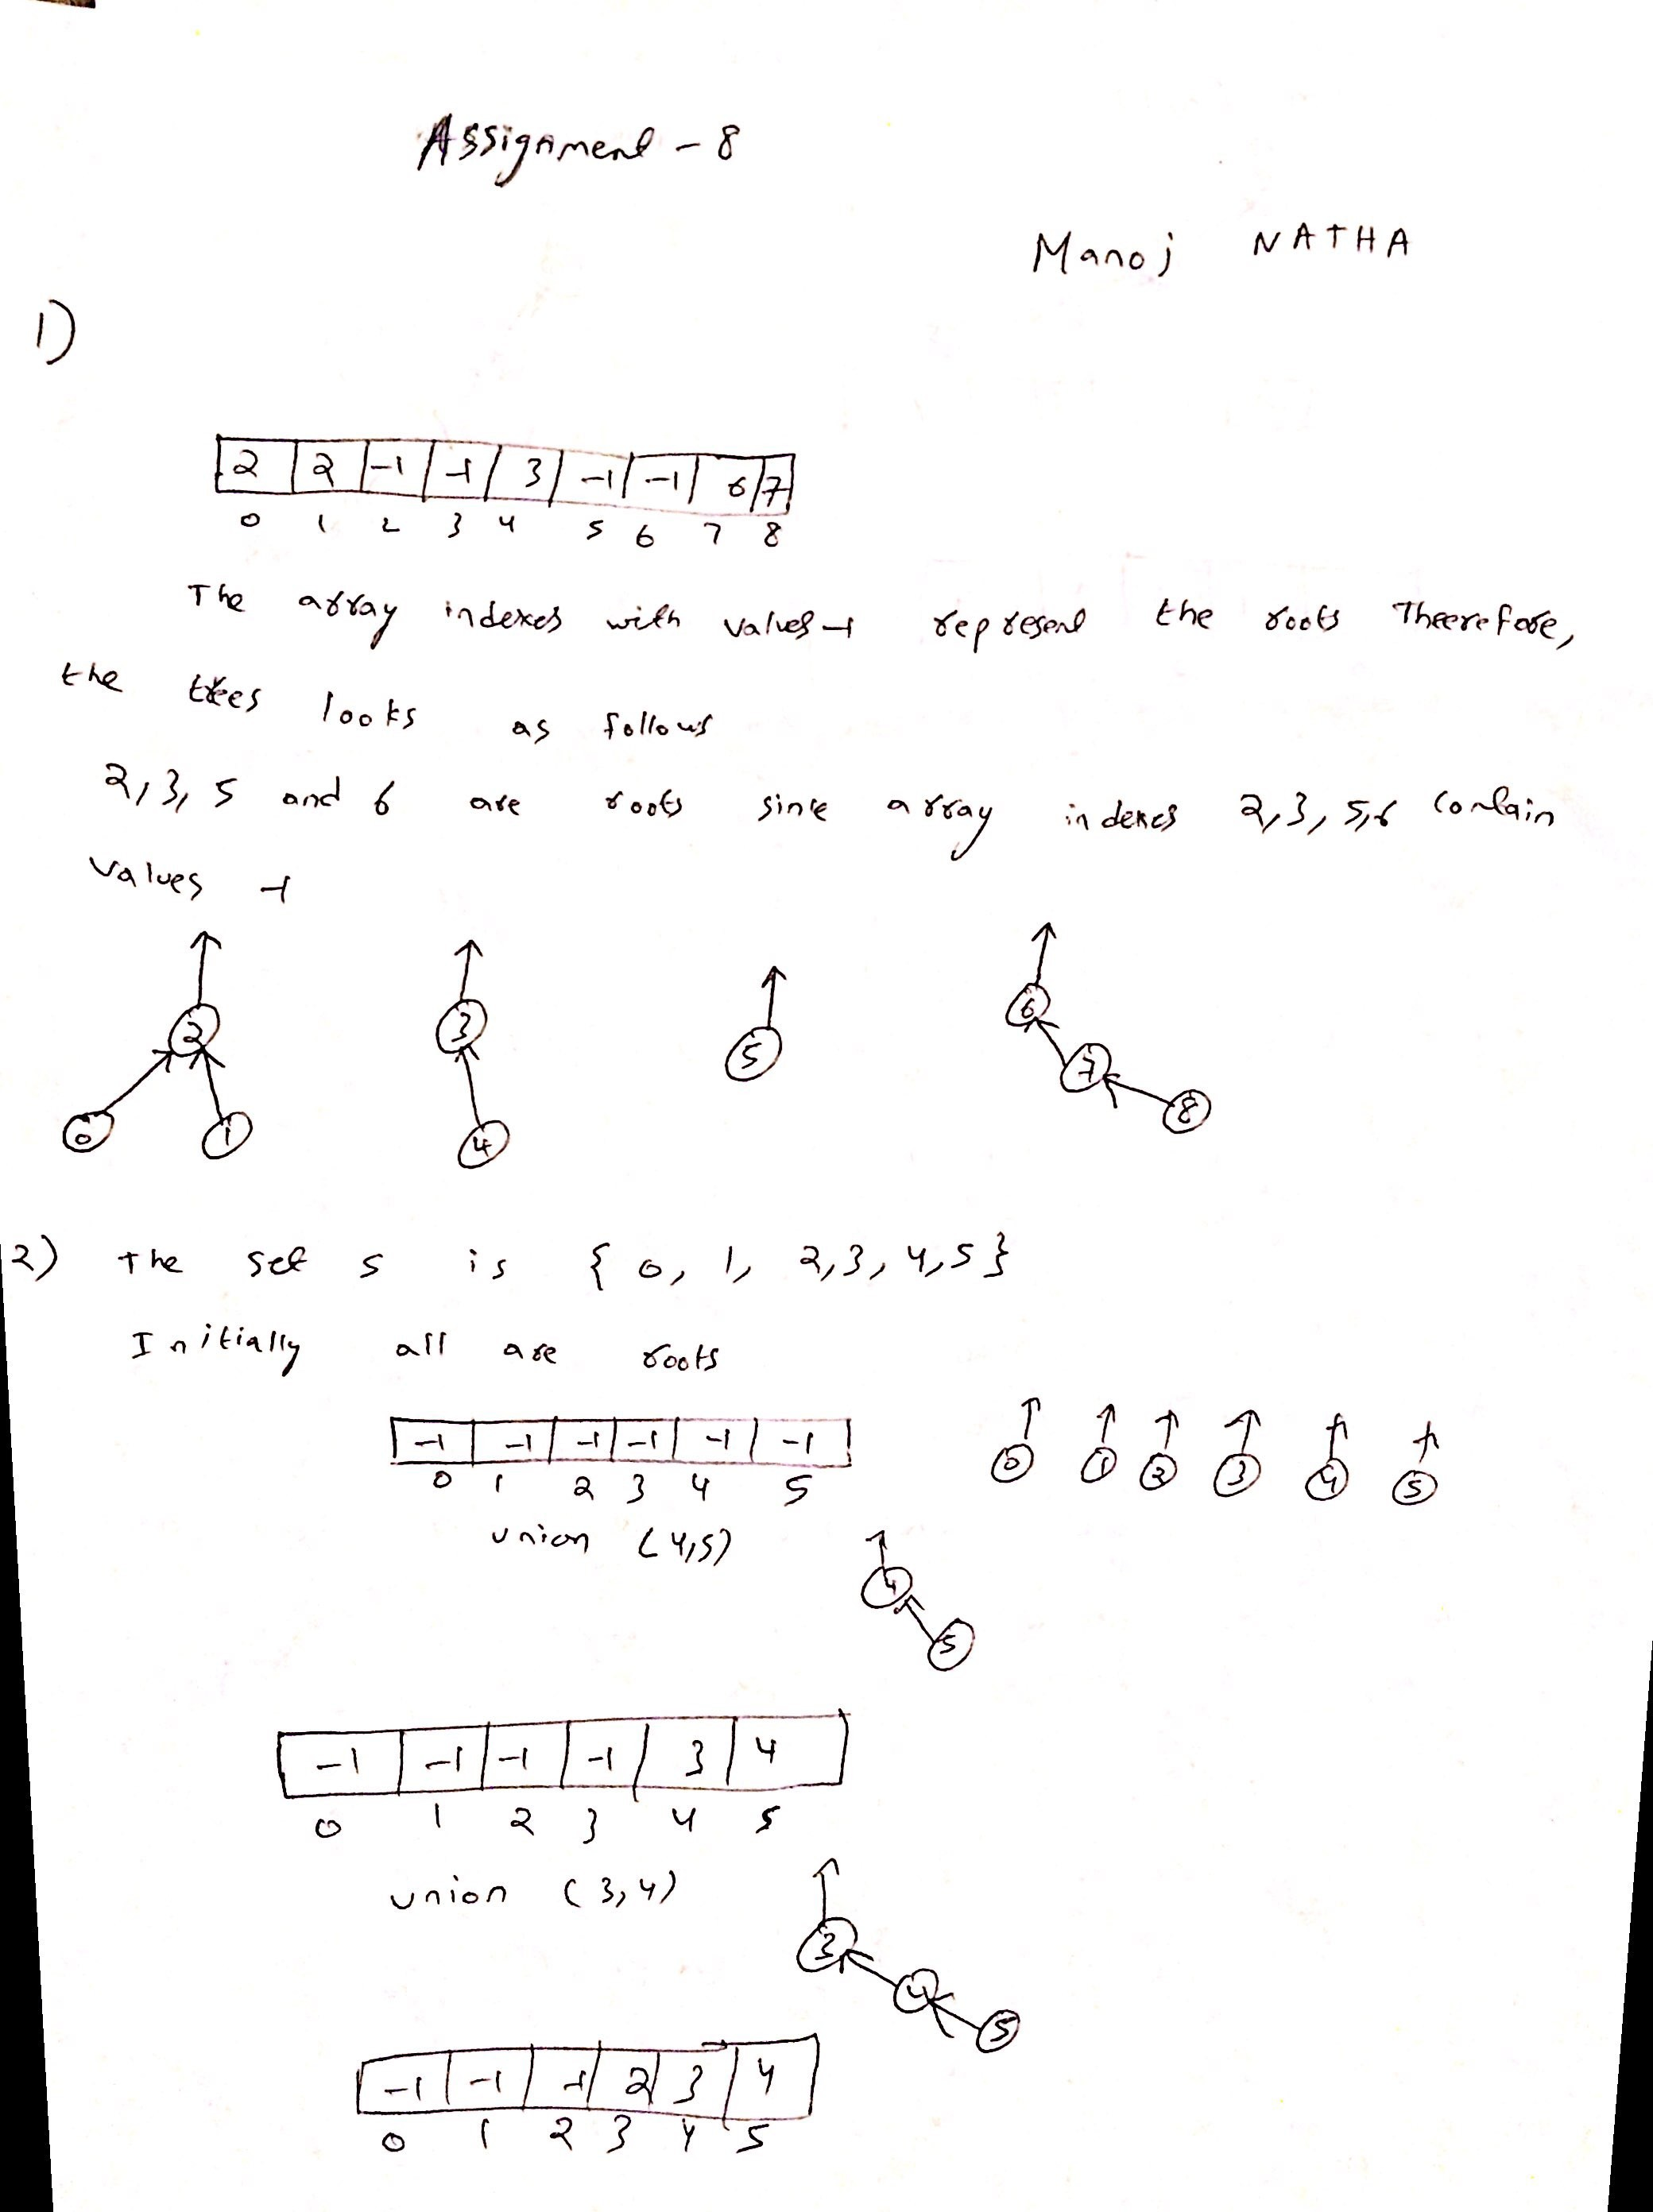 Assignment - 8
Manoj NATHA
1)
2 2 -1 -1 3 -1 -1 6 7
0 1 2 3 4 5 6 7 8
The array indexes with values -1 represent the roots Theerefore,
the trees looks as follows
2, 3, 5 and 6 are roots since array indexes 2, 3, 5, 6 contain
values -1
2 3 5 6
7
0 1 4 8
2) The set s is { 0, 1, 2, 3, 4, 5 }
Initially all are roots
-1 -1 -1 -1 -1 -1
0 1 2 3 4 5
0 1 2 3 4 5
union (4,5)
4
5
-1 -1 -1 -1 3 4
0 1 2 3 4 5
union (3,4)
3
4
5
-1 -1 -1 2 3 4
0 1 2 3 4 5